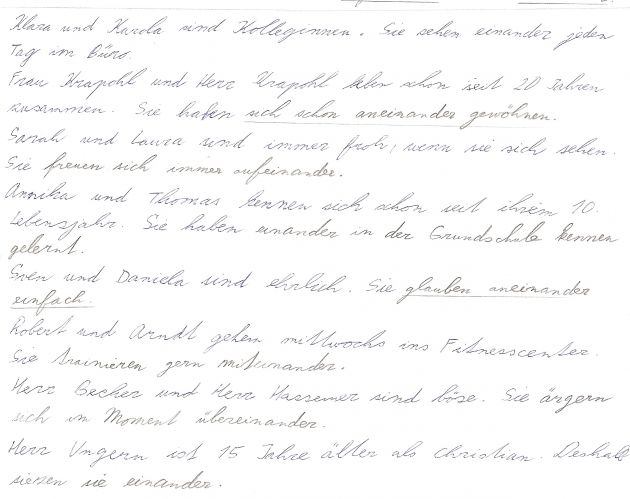 Klara und Karola sind Kolleginnen. Sie sehen einander jeden
Tag im Büro.
Frau Krapohl und Herr Krapohl leben schon seit 20 Jahren
zusammen. Sie haben sich schon aneinander gewöhnen.
Sarah und Laura sind immer froh, wenn sie sich sehen.
Sie freuen sich immer aufeinander.
Annika und Thomas kennen sich schon seit ihrem 10.
Lebensjahr. Sie haben einander in der Grundschule kennen
gelernt.
Sven und Daniela sind ehrlich. Sie glauben aneinander
einfach.
Robert und Arndt gehen mittwochs ins Fitnesscenter.
Sie trainieren gern miteinander.
Herr Becker und Herr Hassemer sind böse. Sie ärgern
sich im Moment übereinander.
Herr Ungern ist 15 Jahre älter als Christian. Deshalb
siezen sie einander.